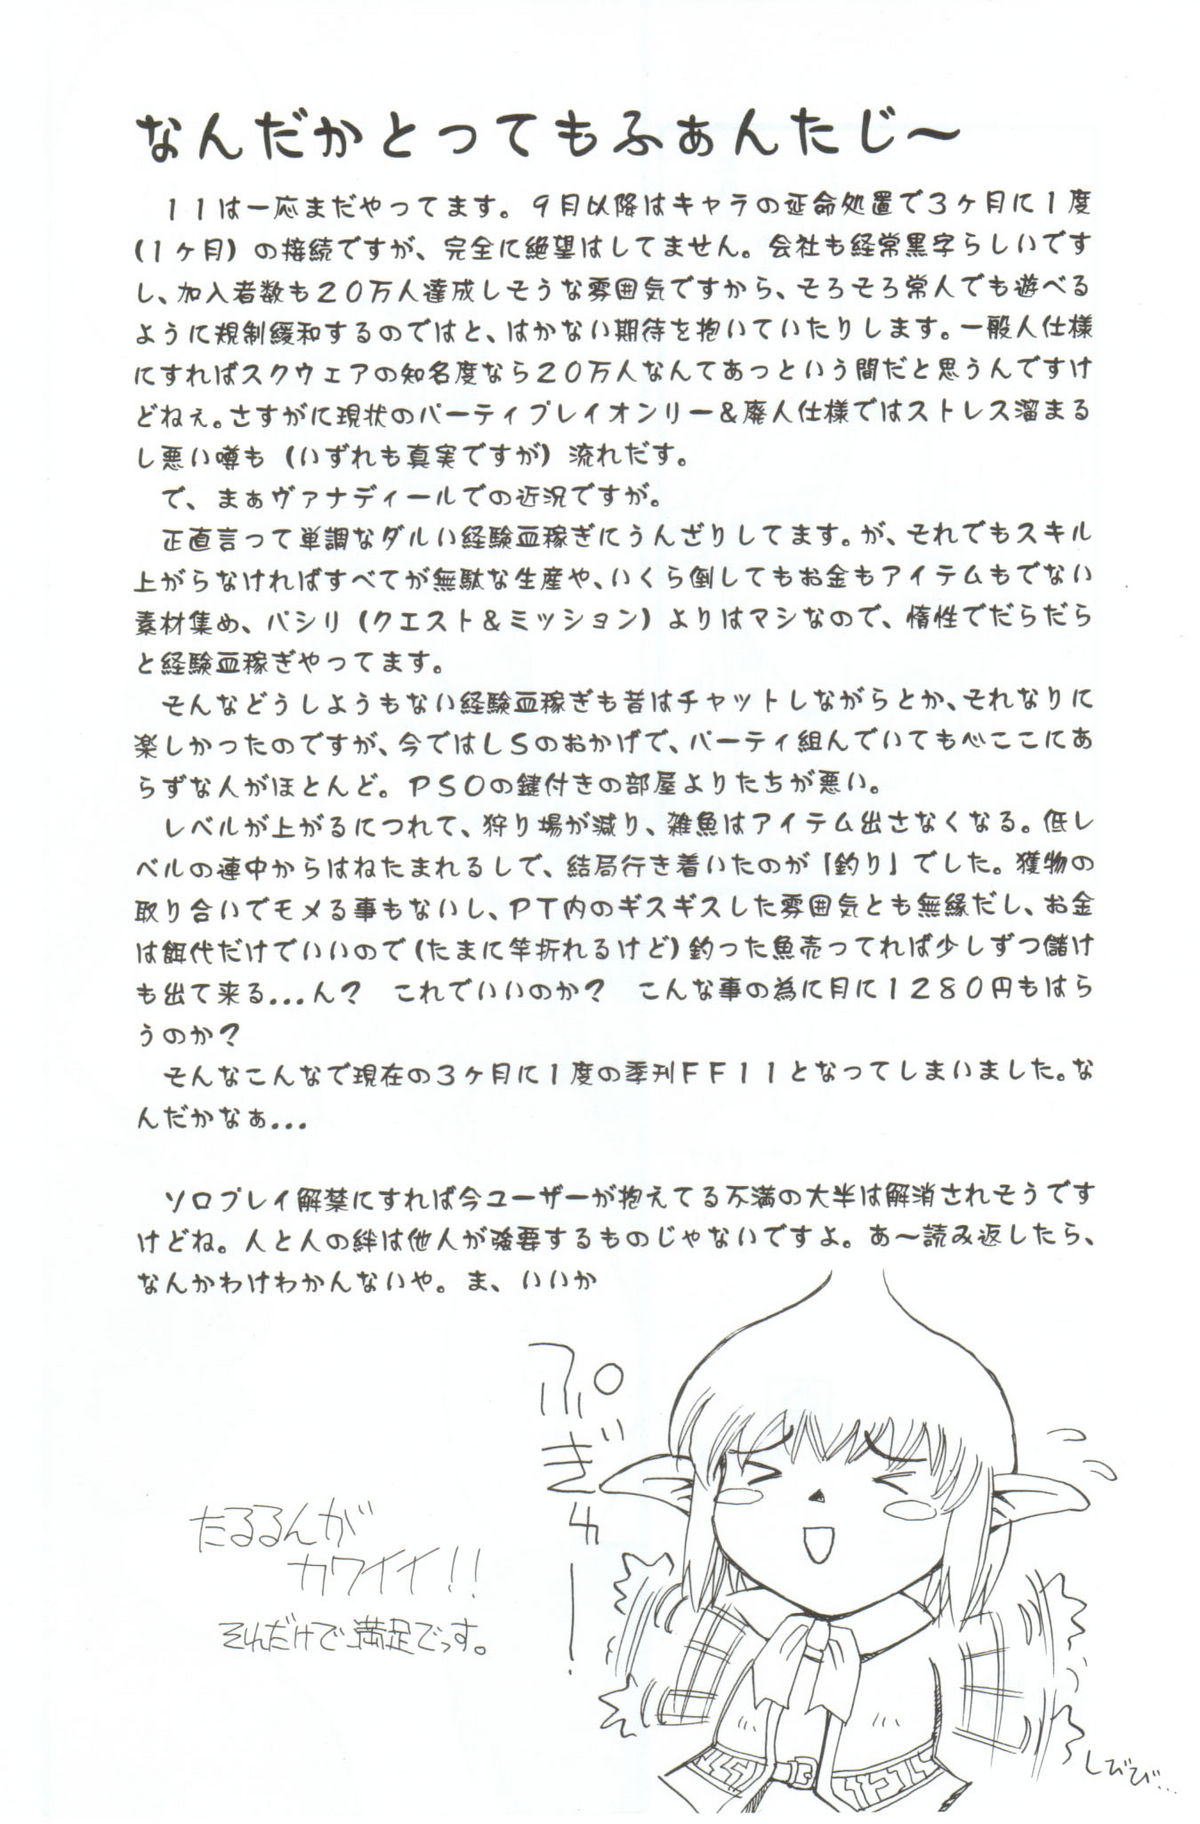 なんだかとってもふぁんたじ～
　１１は一応まだやってます。９月以降はキャラの延命処置で３ヶ月に１度
(１ヶ月) の接続ですが、完全に絶望はしてません。会社も経常黒字らしいです
し、加入者数も２０万人達成しそうな雰囲気ですから、そろそろ常人でも遊べる
ように規制緩和するのではと、はかない期待を抱いていたりします。一般人仕様
にすればスクウェアの知名度なら２０万人なんてあっという間だと思うんですけ
どねぇ。さすがに現状のパーティプレイオンリー＆廃人仕様ではストレス溜まる
し悪い噂も (いずれも真実ですが) 流れだす。
　で、まぁヴァナディールでの近況ですが。
　正直言って単調なダルい経験血稼ぎにうんざりしてます。が、それでもスキル
上がらなければすべてが無駄な生産や、いくら倒してもお金もアイテムもでない
素材集め、パシリ (クエスト＆ミッション) よりはマシなので、惰性でだらだら
と経験血稼ぎやってます。
　そんなどうしようもない経験血稼ぎも昔はチャットしながらとか、それなりに
楽しかったのですが、今ではＬＳのおかげで、パーティ組んでいても心ここにあ
らずな人がほとんど。ＰＳＯの鍵付きの部屋よりたちが悪い。
　レベルが上がるにつれて、狩り場が減り、雑魚はアイテム出さなくなる。低レ
ベルの連中からはねたまれるしで、結局行き着いたのが「釣り」でした。獲物の
取り合いでモメる事もないし、ＰＴ内のギスギスした雰囲気とも無縁だし、お金
は餌代だけでいいので (たまに竿折れるけど) 釣った魚売ってれば少しずつ儲け
も出て来る...ん？　これでいいのか？　こんな事の為に月に１２８０円もはら
うのか？
　そんなこんなで現在の３ヶ月に１度の季刊ＦＦ１１となってしまいました。な
んだかなぁ...
　ソロプレイ解禁にすれば今ユーザーが抱えてる不満の大半は解消されそうです
けどね。人と人の絆は他人が強要するものじゃないですよ。あ～読み返したら、
なんかわけわかんないや。ま、いいか
ぷぎゅー！
たるるんが
カワイイ！！
それだけで満足でっす。
しびび...